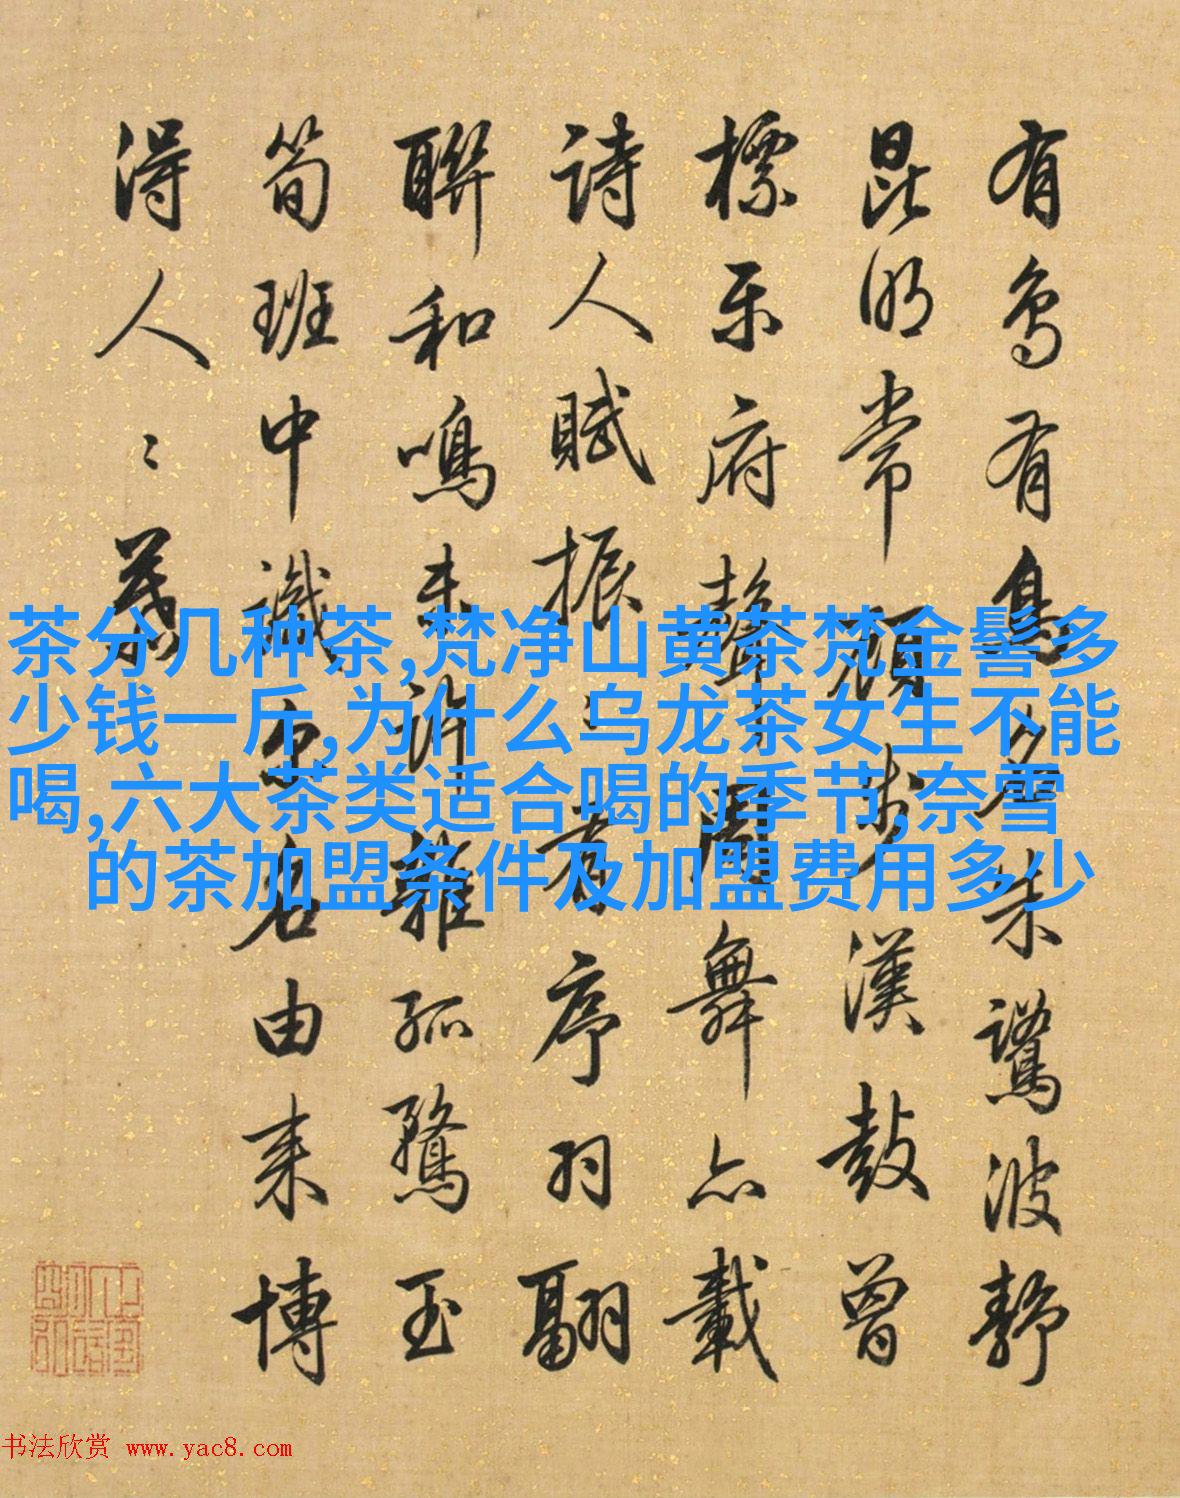 有鳥有
未驚波靜
昆明常顧步漢鼓曾
標樂府聲聞舞亦載
詩人賦振
序羽翮
聯和鳴未許雜孤鶩玉
筍班中識
名由来博
得人
茶分几种茶,梵净山黄茶梵金髻多
少钱一斤,为什么乌龙茶女生不能
喝,六大茶类适合喝的季节,奈雪
的茶加盟条件及加盟费用多少
书法欣赏 www.yac8.com